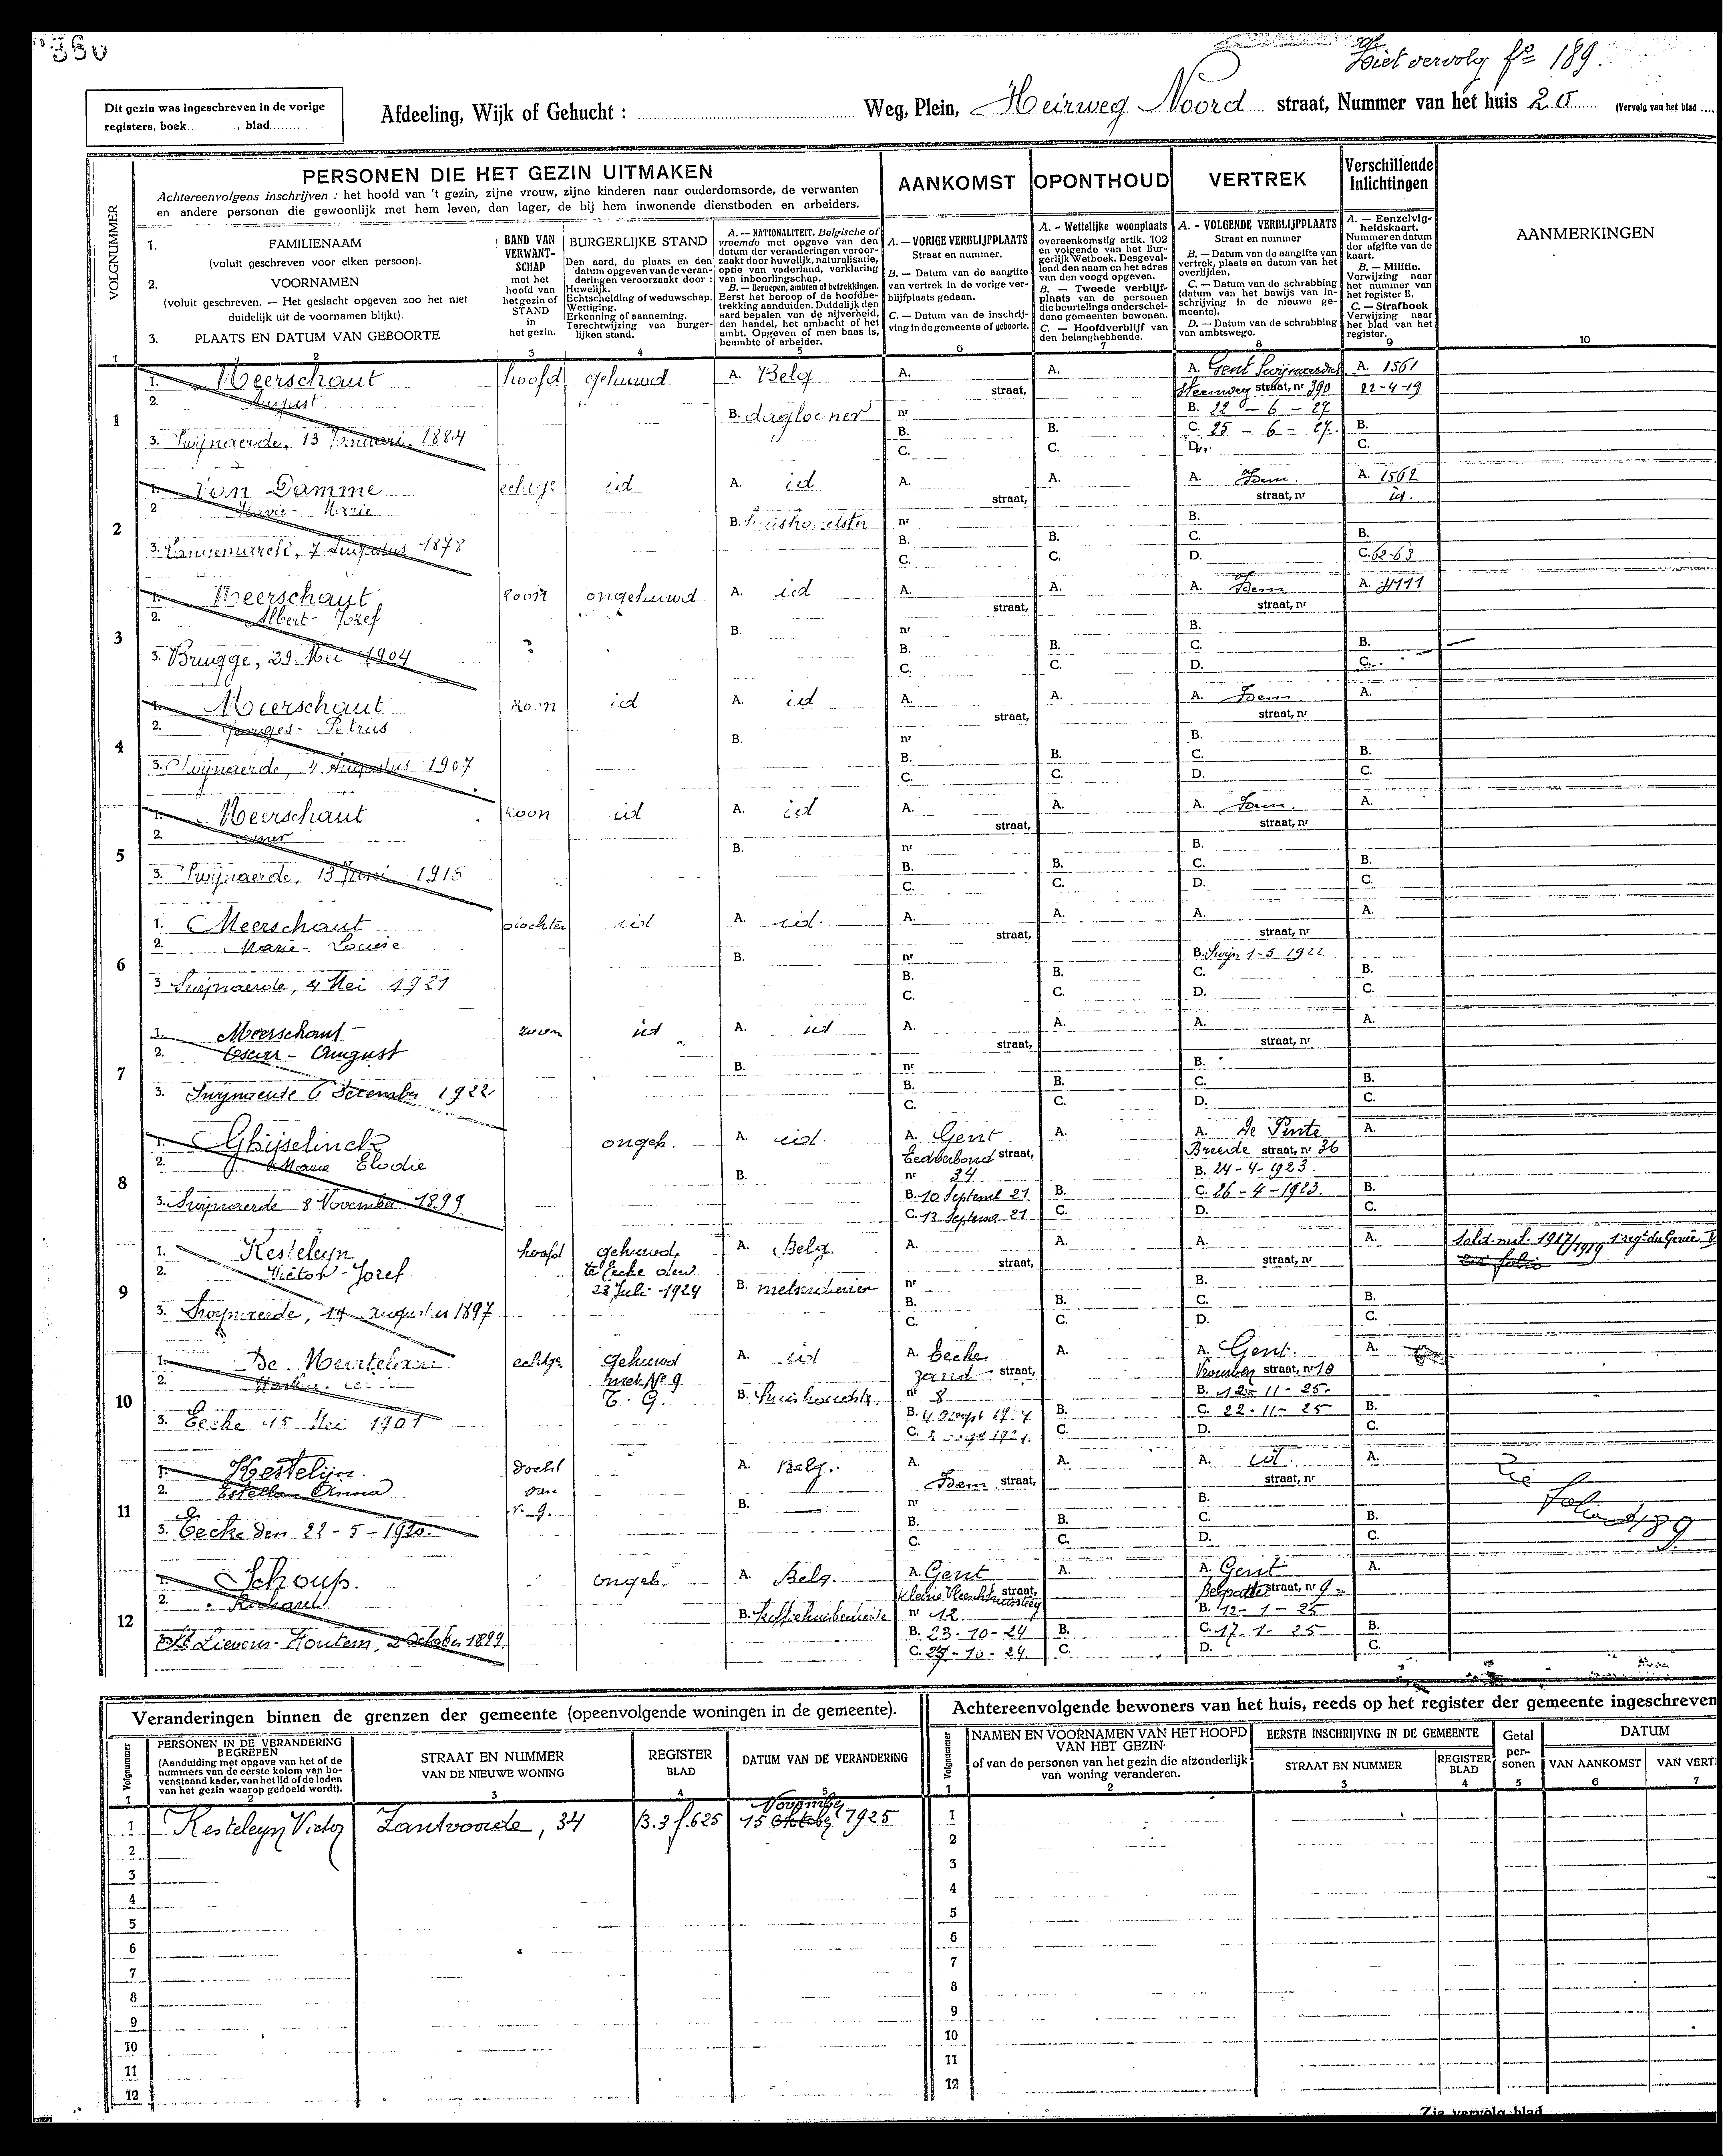 350
Ziet vervolg fo 189.
Dit gezin was ingeschreven in de vorige
registers, boek.. ........, blad.............
Afdeeling, Wijk of Gehucht :
Weg, Plein, Heirweg Noord straat, Nummer van het huis 20 (Vervolg van het blad ....
PERSONEN DIE HET GEZIN UITMAKEN
Achtereenvolgens inschrijven : het hoofd van 't gezin, zijne vrouw, zijne kinderen naar ouderdomsorde, de verwanten
en andere personen die gewoonlijk met hem leven, dan lager, de bij hem inwonende dienstboden en arbeiders.
AANKOMST
OPONTHOUD
VERTREK
Verschillende
Inlichtingen
AANMERKINGEN
VOLGNUMMER
1. FAMILIENAAM
(voluit geschreven voor elken persoon).
2. VOORNAMEN
(voluit geschreven. — Het geslacht opgeven zoo het niet
duidelik uit de voornamen blijkt).
3. PLAATS EN DATUM VAN GEBOORTE
BAND VAN
VERWANT-
SCHAP
met het
hoofd van
het gezin of
STAND
in
het gezin.
BURGERLIJKE STAND
Den aard, de plaats en den
datum opgeven van de veran-
deringen veroorzaakt door :
Huwelijk.
Echtscheiding of weduwschap.
Wettiging.
Erkenning of aanneming.
Terechtwijzing van burger-
lijken stand.
A. — NATIONALITEIT. Belgische of
vreemde met opgave van den
datum der veranderingen veroor-
zaakt door huwelijk, naturalisatie,
optie van vaderland, verklaring
van inboorlingschap.
B. — Beroepen, ambten of betrekkingen.
Eerst het beroep of de hoofdbe-
trekking aanduiden. Duidelijk den
aard bepalen van de nijverheid,
den handel, het ambacht of het
ambt. Opgeven of men baas is,
beambte of arbeider.
A. — VORIGE VERBLIJFPLAATS
Straat en nummer.
B. — Datum van de aangifte
van vertrek in de vorige ver-
blijfplaats gedaan.
C. — Datum van de inschrij-
ving in de gemeente of geboorte.
A. - Wettelijke woonplaats
overeenkomstig artik. 102
en volgende van het Bur-
gerlijk Wetboek. Desgeval-
lend den naam en het adres
van den voogd opgeven.
B. — Tweede verblijf-
plaats van de personen
die beurtelings onderschei-
dene gemeenten bewonen.
C. — Hoofdverblijf van
den belanghebbende.
A. - VOLGENDE VERBLIJFPLAATS
Straat en nummer
B. — Datum van de aangifte van
vertrek, plaats en datum van het
overlijden.
C. — Datum van de schrabbing
(datum van het bewijs van in-
schrijving in de nieuwe ge-
meente).
D. — Datum van de schrabbing
van ambtswege.
A. — Eenzelvig-
heidskaart.
Nummer en datum
der afgifte van de
kaart.
B. — Militie.
Verwijzing naar
het nummer van
het register B.
C. — Strafboek
Verwijzing naar
het blad van het
register.
1 2 3 4 5 6 7 8 9 10
1
1. Meerschaut hoofd gehuwd A. Belg A. A. A. Gent Swijnaerdsch A. 1561
2. August straat, Steenweg straat, nr 390 22-4-19
B. dagloner nr B. 22 - 6 - 27
3. Swijnaerde, 13 Januari 1884 B. B. C. 25 - 6 - 27. B.
C. C. D. C.
2
1. Van Damme echtge id A. id A. A. A. Idem. A. 1562
2 Marie straat, straat, nr id.
B. huishoudster nr B.
3. Langemarck, 7 Augustus 1878 B. B. C. B.
C. C. D. C. 62-63
3
1. Meerschaut zoon ongehuwd A. id A. A. A. Idem A. 4111
2. Albert - Jozef straat, straat, nr
B. nr B.
3. Brugge, 29 Mei 1904 B. B. C. B.
C. C. D. C.
4
1. Meerschaut zoon id A. id A. A. A. Idem A.
2. Georges - Petrus straat, straat, nr
B. nr B.
3. Swijnaerde, 4 Augustus 1907 B. B. C. B.
C. C. D. C.
5
1. Meerschaut zoon id A. id A. A. A. Idem. A.
2. straat, straat, nr
B. nr B.
3. Swijnaerde, 13 Juni 1915 B. B. C. B.
C. C. D. C.
6
1. Meerschaut dochter id A. id. A. A. A. A.
2. Marie - Louise straat, straat, nr
B. nr B. Swijn 1-5 1922
3 Swijnaerde, 4 Mei 1921 B. B. C. B.
C. C. D. C.
7
1. Meerschaut zoon id A. id A. A. A. A.
2. Oscar - August straat, straat, nr
B. nr B.
3. Swijnaerde 6 December 1922 B. B. C. B.
C. C. D. C.
8
1. Ghijselinck ongeh. A. id. A. Gent A. A. De Pinte A.
2. Marie Elodie Eedverbond straat, Breede straat, nr 36
B. nr 34 B. 24-4-1923.
3. Swijnaerde 8 November 1899 B. 10 Septemb 21 B. C. 26-4-1923. B.
C. 13 Septemb 21 C. D. C.
9
1. Kesteleyn hoofd gehuwd, A. Belg A. A. A. A. Sold. mil. 1917/1919 1e regt du Genie
2. Victor - Jozef te Eecke den straat, straat, nr
23 Juli 1924 B. metserdiener nr B.
3. Swijnaerde, 14 augustus 1897 B. B. C. B.
C. C. D. C.
10
1. De echtge gehuwd A. id A. Eecke A. A. Gent. A.
2. met No 9 zand straat, straat, nr 10
T. G. B. huishoudst. nr 8 B. 12-11-25.
3. Eecke 15 Mei 1901 B. B. C. 22-11-25 B.
C. C. D. C.
11
1. Kestelijn. docht A. Belg. A. A. A. id. A. Zie
2. Estella van Idem straat, straat, nr folio 189
n. 9. B. — nr B.
3. Eecke den 22-5-1920. B. B. C. B.
C. C. D. C.
12
1. Schoup. ongeh. A. Belg. A. Gent A. A. Gent A.
2. Richard Kleine Vleeschhuissteeg straat, straat, nr 9
B. koffiehuisbediende nr 12 B. 12-1-25
3. St Lievens-Houtem, 2 October 1899 B. 23-10-24 B. C. 17-1-25 B.
C. 27-10-24. C. D. C.
Veranderingen binnen de grenzen der gemeente (opeenvolgende woningen in de gemeente).
Volgnummer
PERSONEN IN DE VERANDERING
BEGREPEN
(Aanduiding met opgave van het of de
nummers van de eerste kolom van bo-
venstaand kader, van het lid of de leden
van het gezin waarop gedoeld wordt).
STRAAT EN NUMMER
VAN DE NIEUWE WONING
REGISTER
BLAD
DATUM VAN DE VERANDERING
1 2 3 4 5
November
1 Kesteleyn Victor Zantvoorde, 34 B.3 f.625 15 Oktober 1925
2
3
4
5
6
7
8
9
10
11
12
Achtereenvolgende bewoners van het huis, reeds op het register der gemeente ingeschreven
Volgnummer
NAMEN EN VOORNAMEN VAN HET HOOFD
VAN HET GEZIN
of van de personen van het gezin die afzonderlijk
van woning veranderen.
EERSTE INSCHRIJVING IN DE GEMEENTE
STRAAT EN NUMMER
REGISTER
BLAD
Getal
per-
sonen
DATUM
VAN AANKOMST
VAN VERT
1 2 3 4 5 6 7
1
2
3
4
5
6
7
8
9
10
11
12
Zie vervolg blad